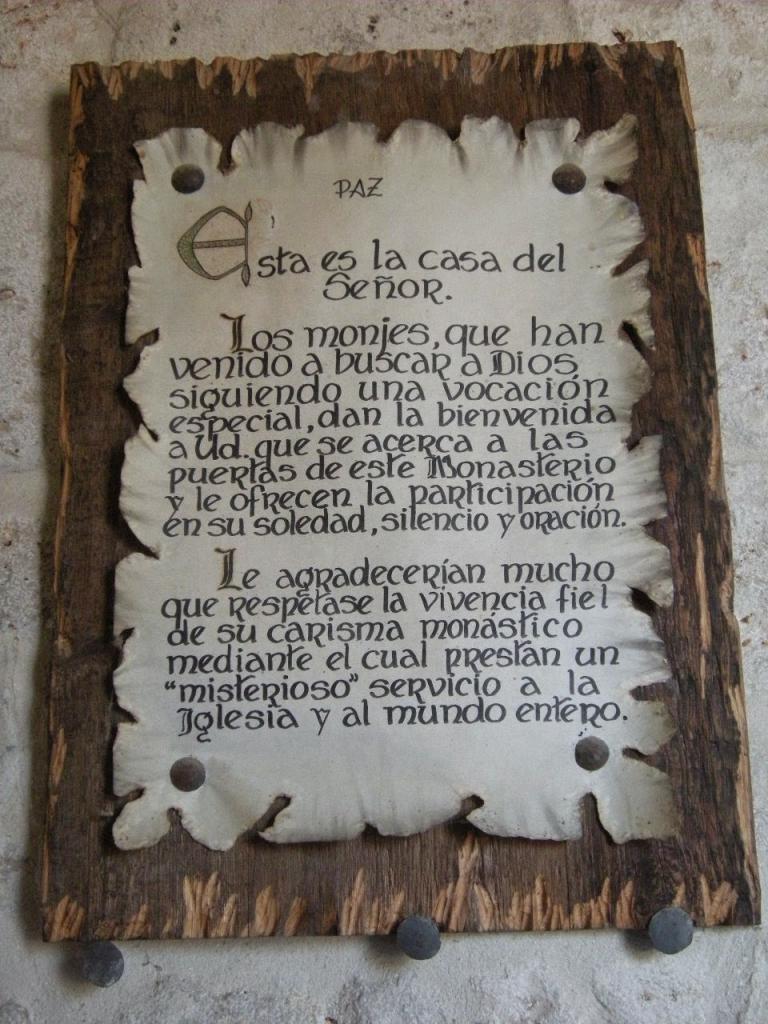 PAZ
Esta es la casa del
Señor.
Los monjes, que han
venido a buscar a Dios
siguiendo una vocación
especial, dan la bienvenida
a Ud. que se acerca a las
puertas de este Monasterio
y le ofrecen la participación
en su soledad, silencio y oración.
Le agradecerían mucho
que respetase la vivencia fiel
de su carisma monástico
mediante el cual prestan un
"misterioso" servicio a la
Iglesia y al mundo entero.